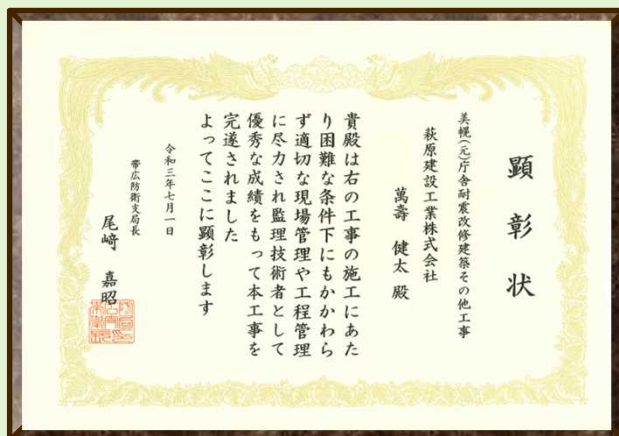 顕彰状
美幌(元)庁舎耐震改修建築その他工事
萩原建設工業株式会社
萬壽 健太 殿
貴殿は右の工事の施工にあた
り困難な条件下にもかかわら
ず適切な現場管理や工程管理
に尽力され監理技術者として
優秀な成績をもって本工事を
完遂されました
よってここに顕彰します
令和三年七月一日
帯広防衛支局長
尾﨑 嘉昭